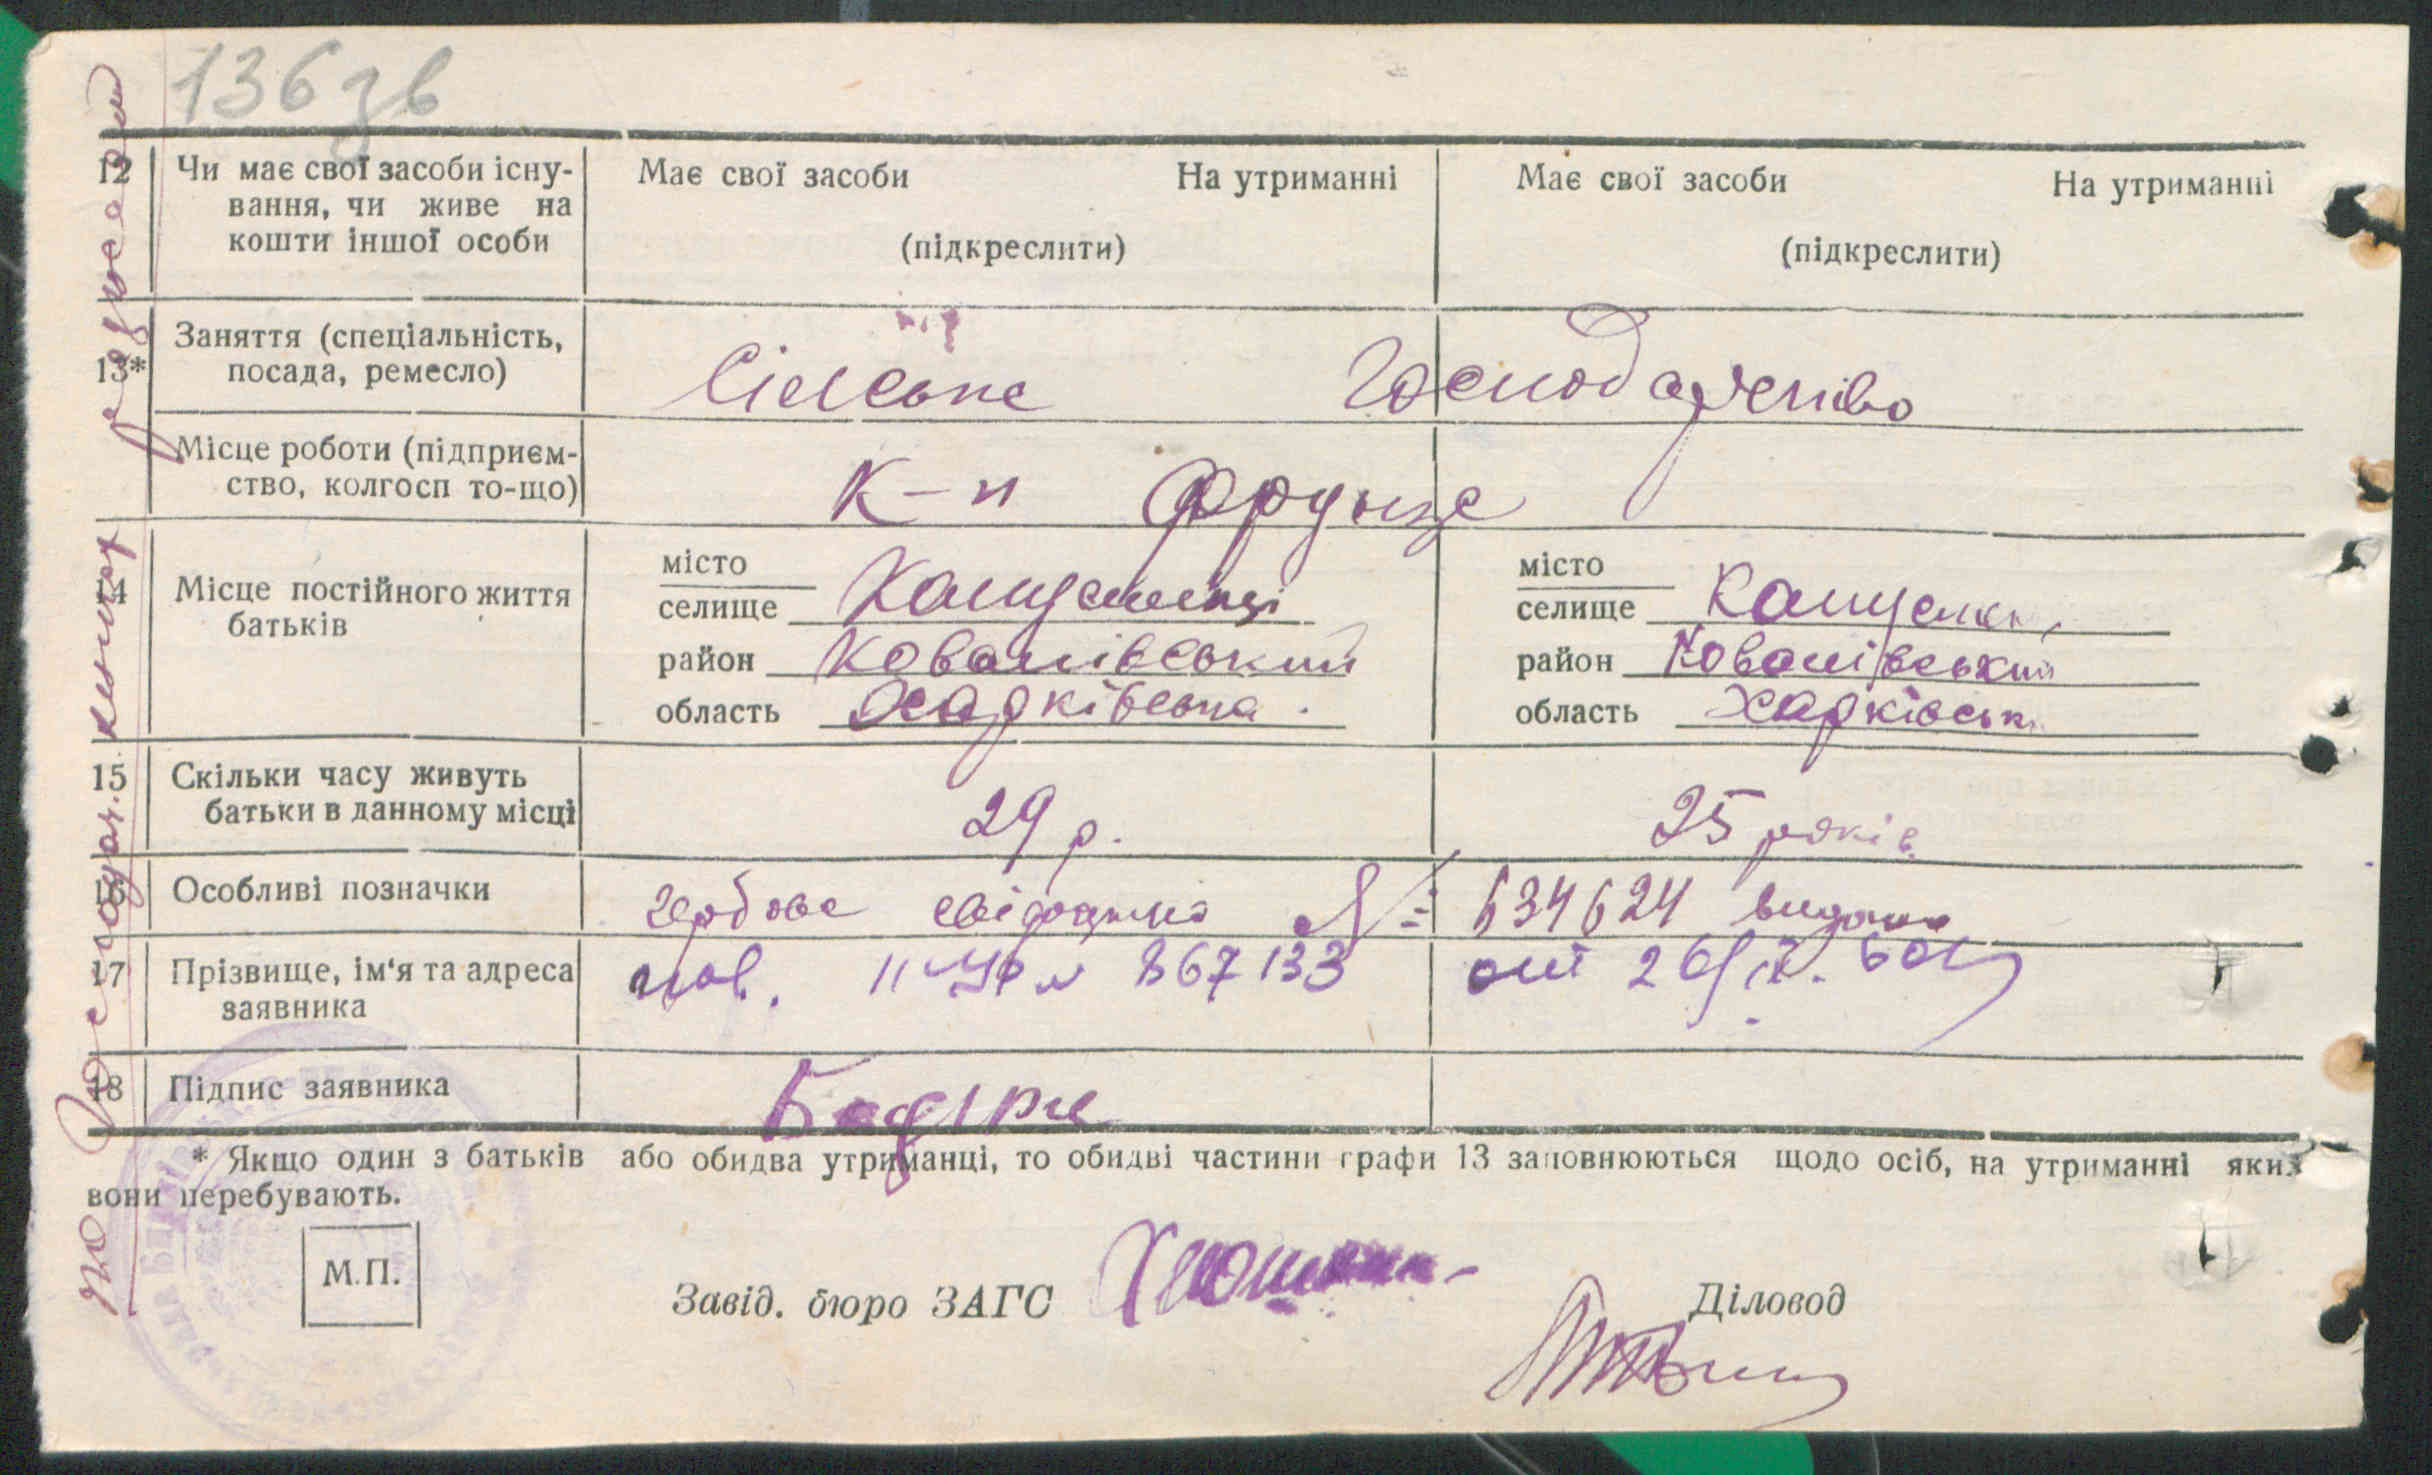 136 зв
12 Чи має свої засоби існу- Має свої засоби На утриманні Має свої засоби На утриманні
вання, чи живе на
кошти іншої особи (підкреслити) (підкреслити)
13* Заняття (спеціальність,
посада, ремесло) Сільське Господарство
Місце роботи (підприєм-
ство, колгосп то-що) К-п Фрунзе
14 Місце постійного життя
батьків
місто місто
селище селище
район район
область Харківська область Харківськ
15 Скільки часу живуть
батьки в данному місці 29 р. 25 років
16 Особливі позначки гербове свідоцтво № 634624 видано
17 Прізвище, ім'я та адреса
заявника пов. 867133 от 26/ІХ.
18 Підпис заявника
* Якщо один з батьків або обидва утриманці, то обидві частини графи 13 заповнюються щодо осіб, на утриманні яких
вони перебувають.
М.П.
Завід. бюро ЗАГС Діловод